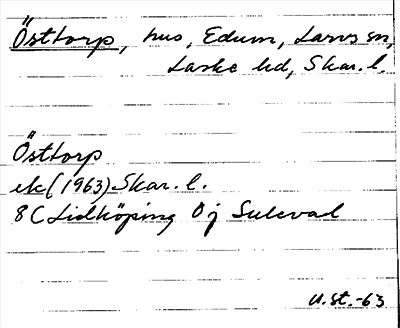 Östtorp, hus, Edum, Larvs sn,
Laske hd, Skar. l.
Östtorp
ek (1963) Skar. l.
8 C Lidköping 0 j Suleval
U.St.-63